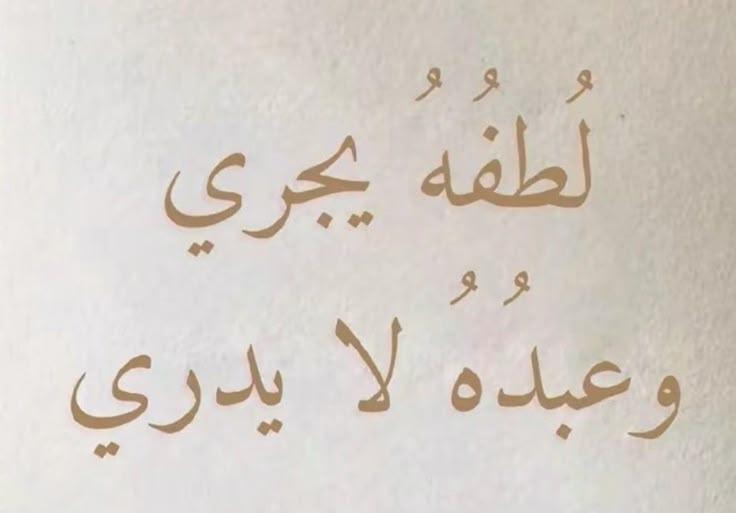 لُطفُهُ يجري
وعبدُهُ لا يدري